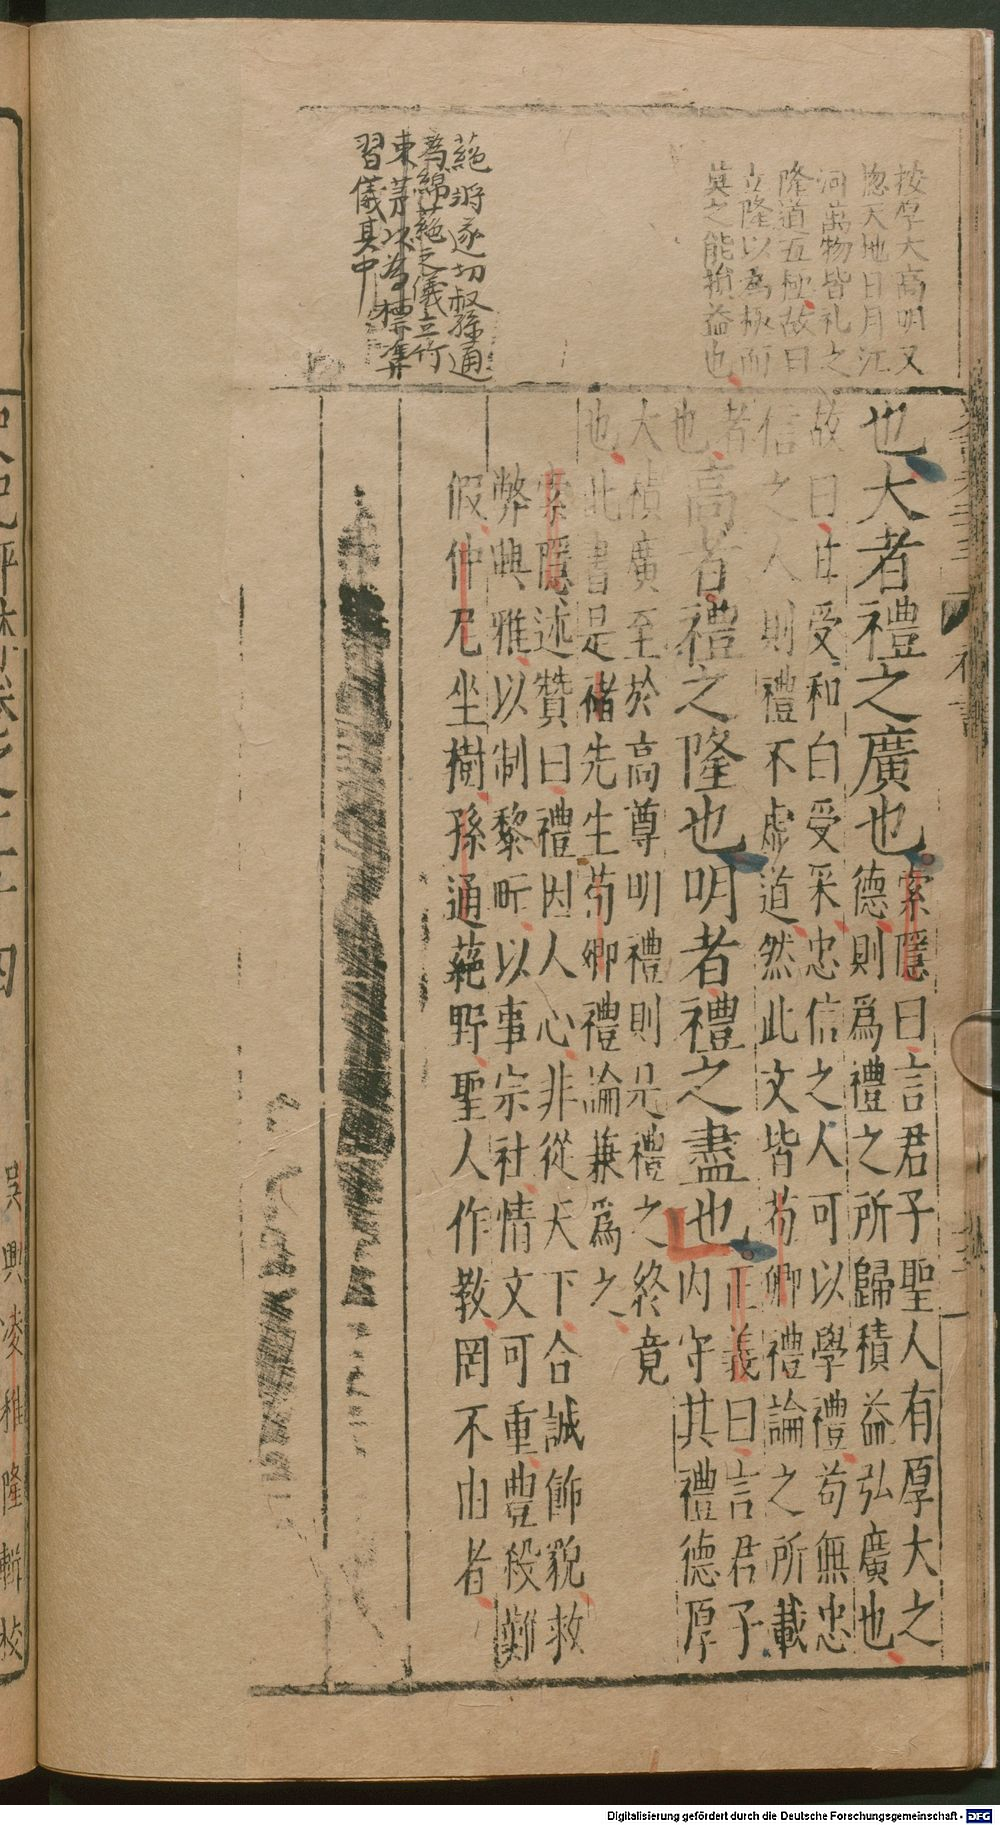 按厚大高明又
揔天地日月江
河萬物皆礼之
隆道互極故曰
立隆以為極而
莫之能損益也
蕝將遂切叔孫通
為綿蕝之儀立竹
束茅以為標準
習儀其中
也大者禮之廣也
索隱曰言君子聖人有厚大之
德則爲禮之所歸積益弘廣也
故曰甘受和白受采忠信之人可以學禮苟無忠
信之人則禮不虛道然此文皆荀卿禮論之所載
者
也
高者禮之隆也明者禮之盡也
正義曰言君子
内守其禮德厚
大積廣至於高尊明禮則是禮之終竟
也此書是禇先生荀卿禮論兼爲之
索隱述贊曰禮因人心非從天下合誠飾貌救
弊興雅以制黎甿以事宗社情文可重豐殺難
假仲尼坐樹孫通蕝野聖人作教罔不由者
史記評林卷之二十四
吳興凌稚隆輯校
Digitalisierung gefördert durch die Deutsche Forschungsgemeinschaft - DFG